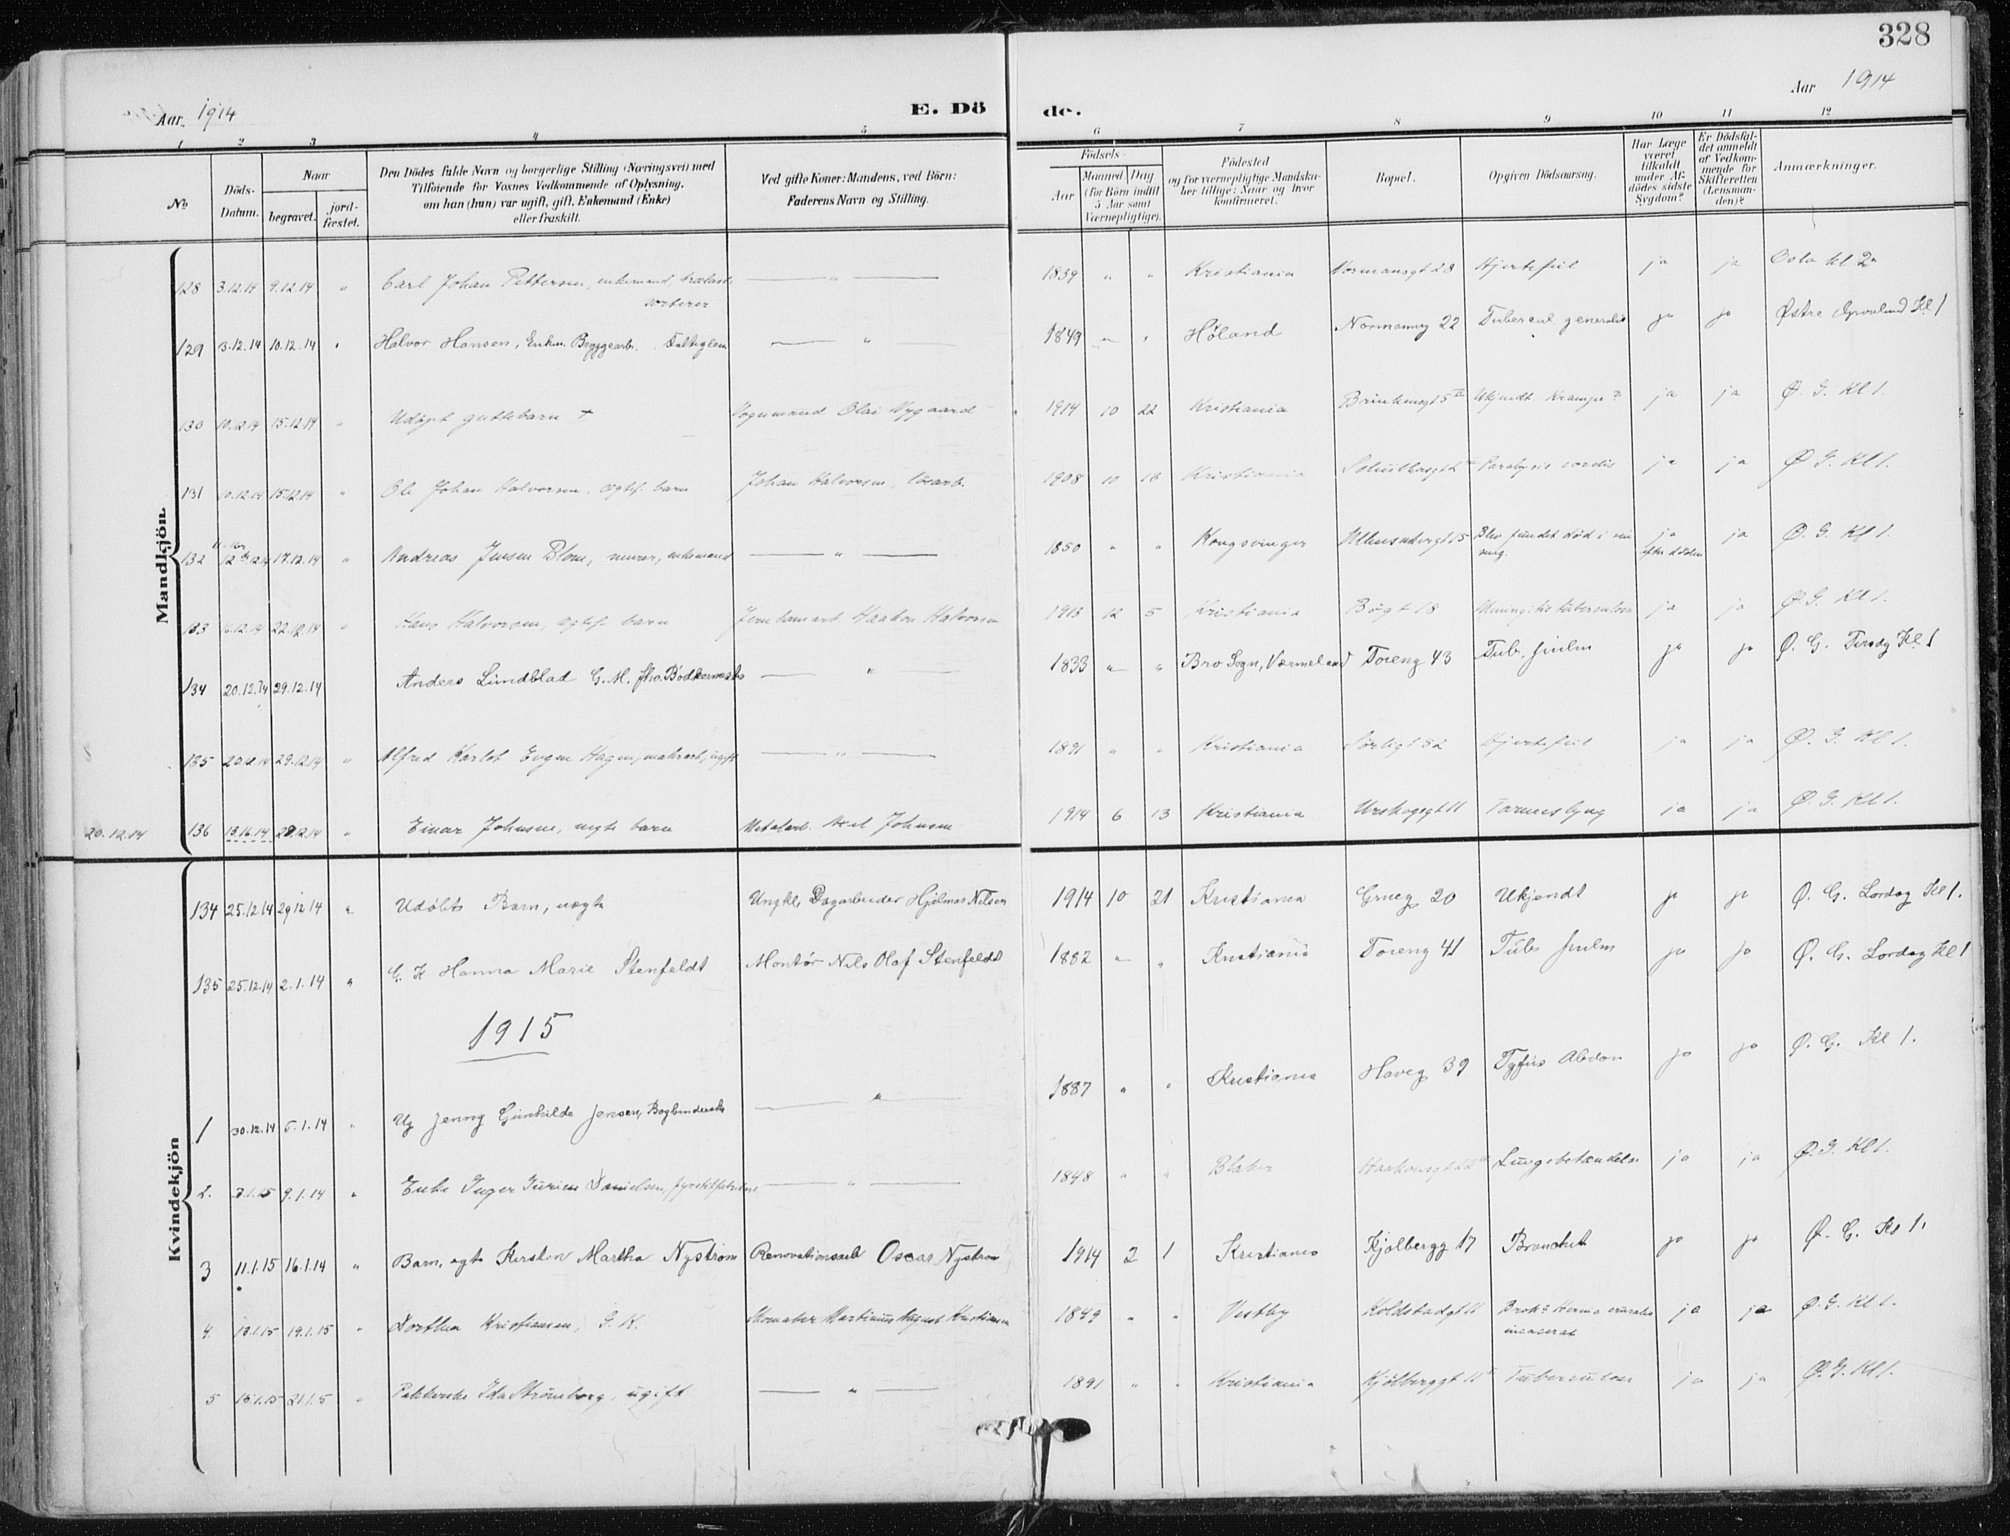 328
Aar 1914
E. Dö
de.
Aar 1914
1 2 3 4 5 6 7 8 9 10 11 12
No
Döds-Datum.
Naar
begravet.
jord-fæstet.
Den Dödes fulde Navn og borgerlige Stilling (Næringsvei) med
Tilföiende for Voxnes Vedkommende af Oplysning,
om han (hun) var ugift, gift, Enkemand (Enke)
eller fraskilt.
Ved gifte Koner: Mandens, ved Börn:
Faderens Navn og Stilling.
Födsels-
Aar
Maaned Dag
(for Börn indtil
5 Aar samt
Værnepligtige).
Födested
og for værnepligtige Mandska-
ber tillige: Naar og hvor
konfirmeret.
Bopæl.
Opgiven Dödsaarsag.
Har Læge
været
tilkaldt
under Af-
dödes sidste
Sygdom?
Er Dödsfal-
det anmeldt
af Vedkom-
mende for
Skifteretten
(Lensman-
den)?
Anmærkninger.
Mandkjön.
128 3.12.14 9.12.14 " Carl Johan Pettersen, enkemand, — " — 1839 " " Kristiania Normansgt 28 Hjertefeil ja ja Oslo kl 2
129 3.12.14 10.12.14 " Halvor Hansen, Enkm. Byggearb. — " — 1849 " " Høland Normanng 22 Tubercul. generalis ja ja Østre Gravlund Kl 1
130 10.12.14 15.12.14 " Udöpt guttebarn + Vognmand Olai Nygaard 1914 10 22 Kristiania Ukjendt Krampe? ja ja Ø. G. Kl 1.
131 10.12.14 15.12.14 " Ole Johan Halvorsen, ægtef. barn Johan Halvorsen, 1908 10 18 Kristiania Paralysis cordis ja ja Ø G. Kl 1.
132 12.14 17.12.14 " Andreas Jensen Blom, murer, enkemand — " — 1850 " " Kongsvinger Ullensakergt 15 Blev fundet död i sin seng. ja efter döden ja Ø. G. Kl 1.
133 16.12.14 22.12.14 " Hans Halvorsen, ægtef. barn Jernbanearb. Haakon Halvorsen 1913 12 5 Kristiania Bögt 18 Meningitis tuberculosa ja ja Ø G. Kl 1.
134 20.12.14 29.12.14 Anders Lundblad G. M. fhv. Bödkermester — " — 1833 " " Bro Sogn, Værmeland Toieng 43 Tub. pulm ja ja Ø. G. Tirsdag Kl 1
135 29.12.14 " Alfred Karlot Eugen Hagen, ugift — " — 1891 " " Kristiania Sörligt 52 Hjertefeil ja ja Ø. G. Kl 1.
20.12.14 136 28.12.14 " Einar Johnsen, uægte barn Metalarb. Axel Johnsen 1914 6 13 Kristiania Urskoggt 11 Tarmeslyng ja ja Ø. G. Kl 1.
Kvindekjön
134 25.12.14 29.12.14 " Udöbt Barn, uægte Ungkl. Dagarbeider Hjelmar Nilsen 1914 10 21 Kristiania Grueg 20 Ukjendt ja ja Ø. G. Lordag Kl 1.
135 25.12.14 2.1.14 " G. K Hanna Marie Stenfeldt Montør Nils Olaf Stenfeldt 1882 " " Kristiania Toieng 41 Tub pulm ja ja Ø. G. Lordag Kl 1
1915
1 30.12.14 5.1.14 " Ug Jenny Gunhilde Jensen, Bogbinderske — " — 1887 " " Kristiania Haveg 39 Tyfus Abdom ja ja Ø. G. Kl 1.
2. 3.1.15 9.1.14 " Enke Inger Gurine Danielsen, — " — 1848 " " Blaker Lungebetændelse ja ja Ø. G. Kl 1.
3 11.1.15 16.1.14 " Barn, ægte Kirsten Martha Nystrøm Renovationsarb Oscar Nystrøm 1914 2 1 Kristiania Kjølbergg 17 Bronchit ja ja Ø. G. Kl 1.
4. 13.1.15 19.1.15 " Dorthea Kristiansen, G. K. Skomaker Martinus August Kristiansen 1849 " " Vestby Koldstadgt 11 Brok? Hernia cruralis incacerat ja ja Ø. G. Kl 1.
5 15.1.15 21.1.5 " Pakkerske Ida Strømborg, ugift — " — 1891 " " Kristiania Kjølberggt 11 Tuberculose ja ja Ø. G. Kl 1.